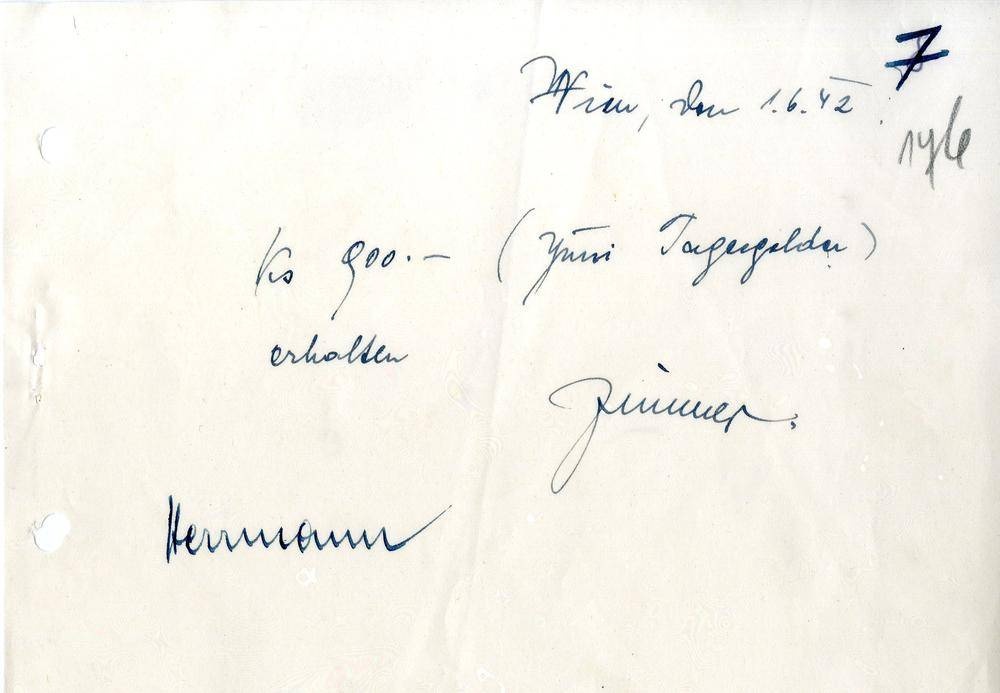 7
Wien, den 1.6.42.
14/6
Ks 900.- (Juni Tagesgelder)
erhalten
Zimmer.
Herrmann